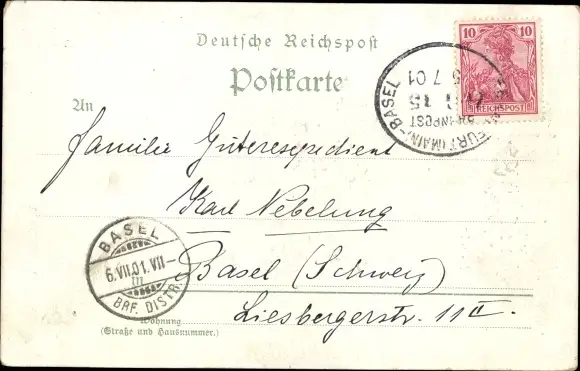 Deutsche Reichspost
Postkarte
10 10
REICHSPOST
FURT (MAIN)-BASEL
BAHNPOST
7 01
An
Familie Güterexpedient
Karl Nebelung
Basel (Schweiz)
Liesbergerstr. 11 II.
BASEL
6.VII.01.VII-
III
BRF. DISTR.
Wohnung
(Straße und Hausnummer.)